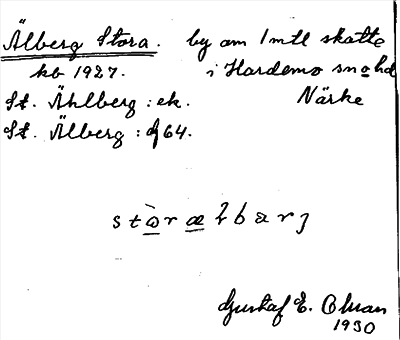 Älberg Stora. by om 1 mtl skatte
kb 1927. i Hardemo snohd
St. Åhlberg: ek. Närke
St. Älberg: dj 64.
stòrælbarj
Gustaf E. Olman
1930